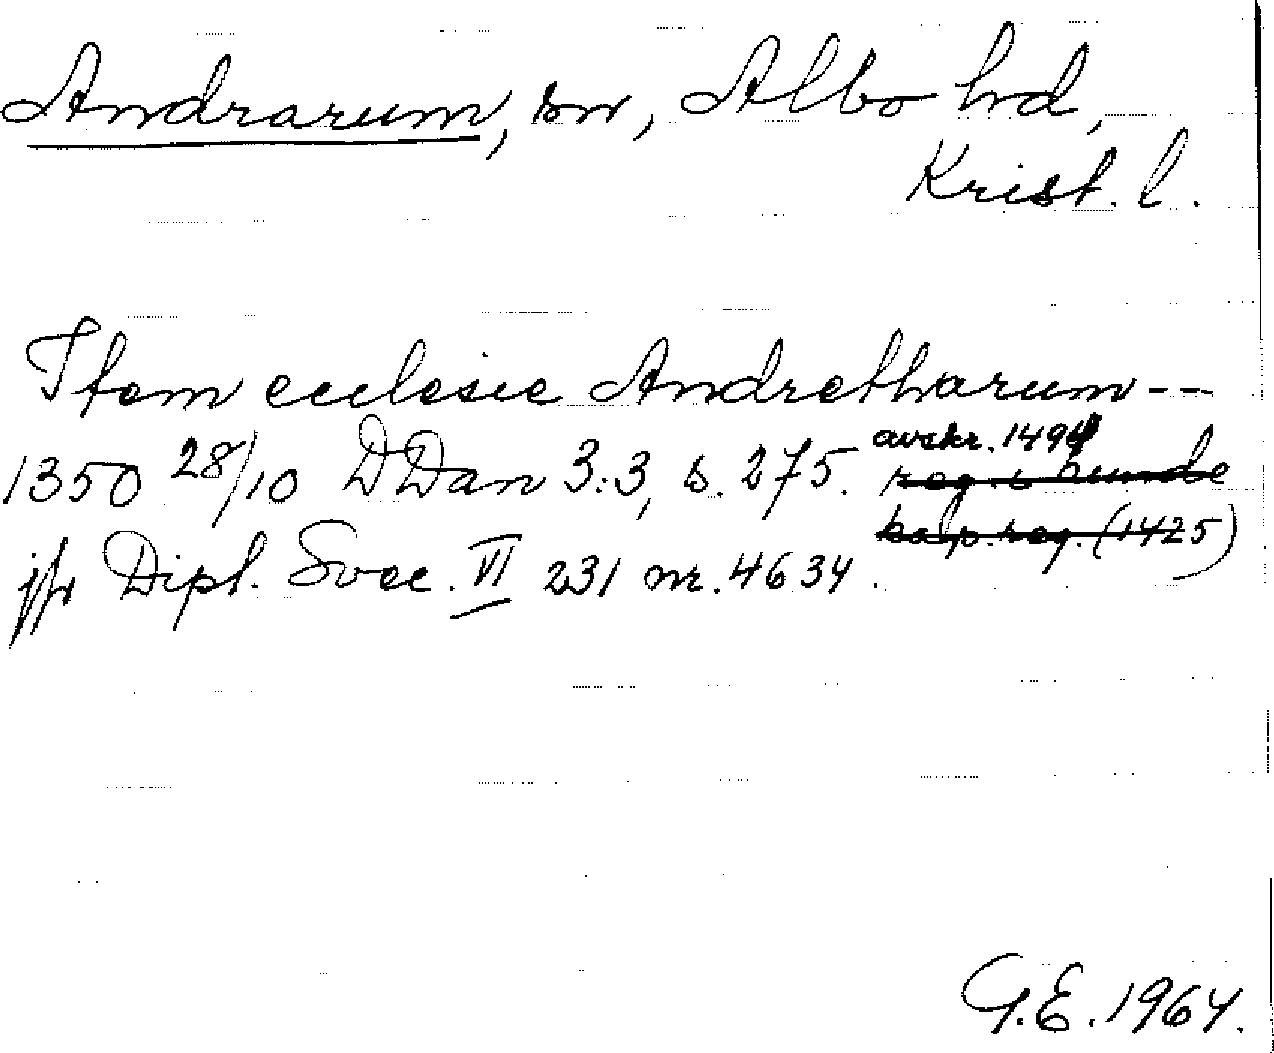 Andrarum, sn, Albo hd,
Krist. l.
Item ecclesie Andretharum --
1350 28/10 DDan 3:3, s. 275. avskr. 1494
reg. i Lunde
kap. reg. (1425)
jfr Dipl. Svec. VI 231 nr. 4634.
G.E. 1964.